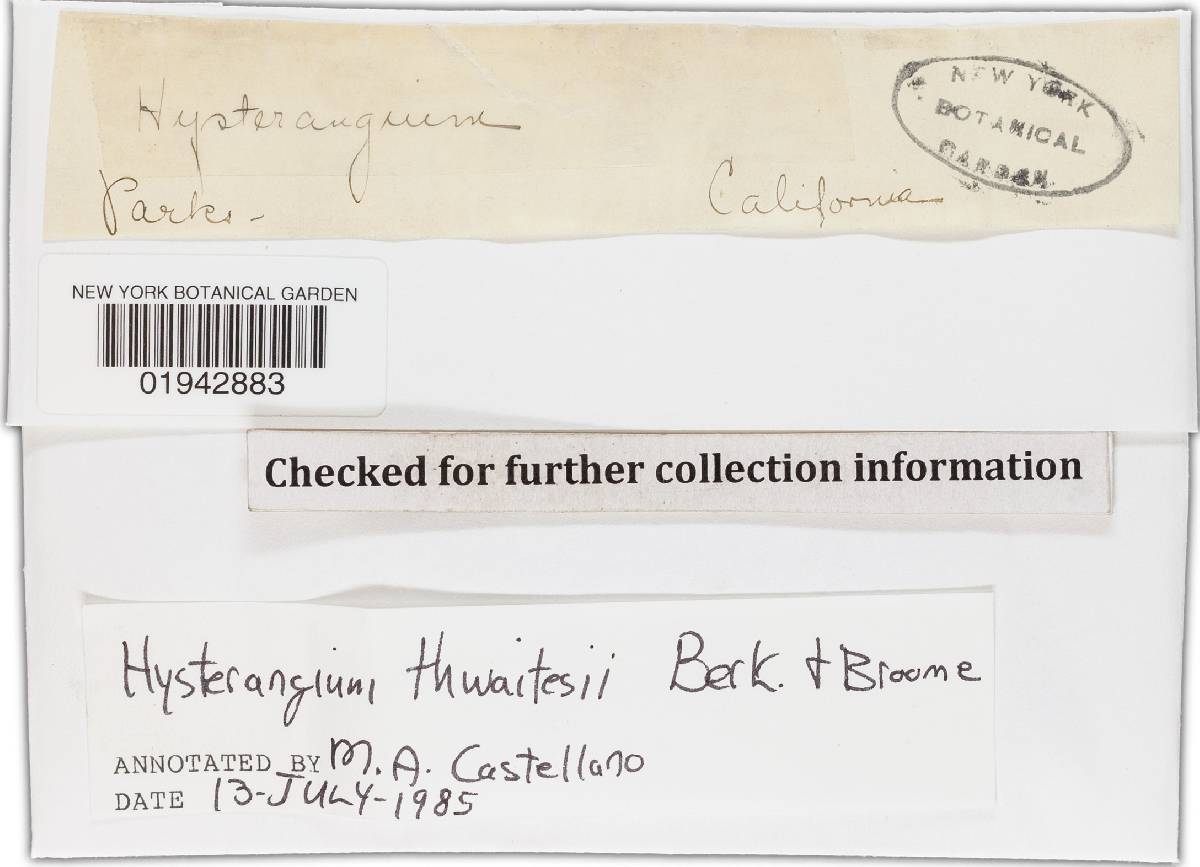 Hysterangium
NEW YORK
BOTANICAL
GARDEN
Parks -
California
NEW YORK BOTANICAL GARDEN
01942883
Checked for further collection information
Hysterangium thwaitesii Berk. & Broome
ANNOTATED BY M. A. Castellano
DATE 13-JULY-1985